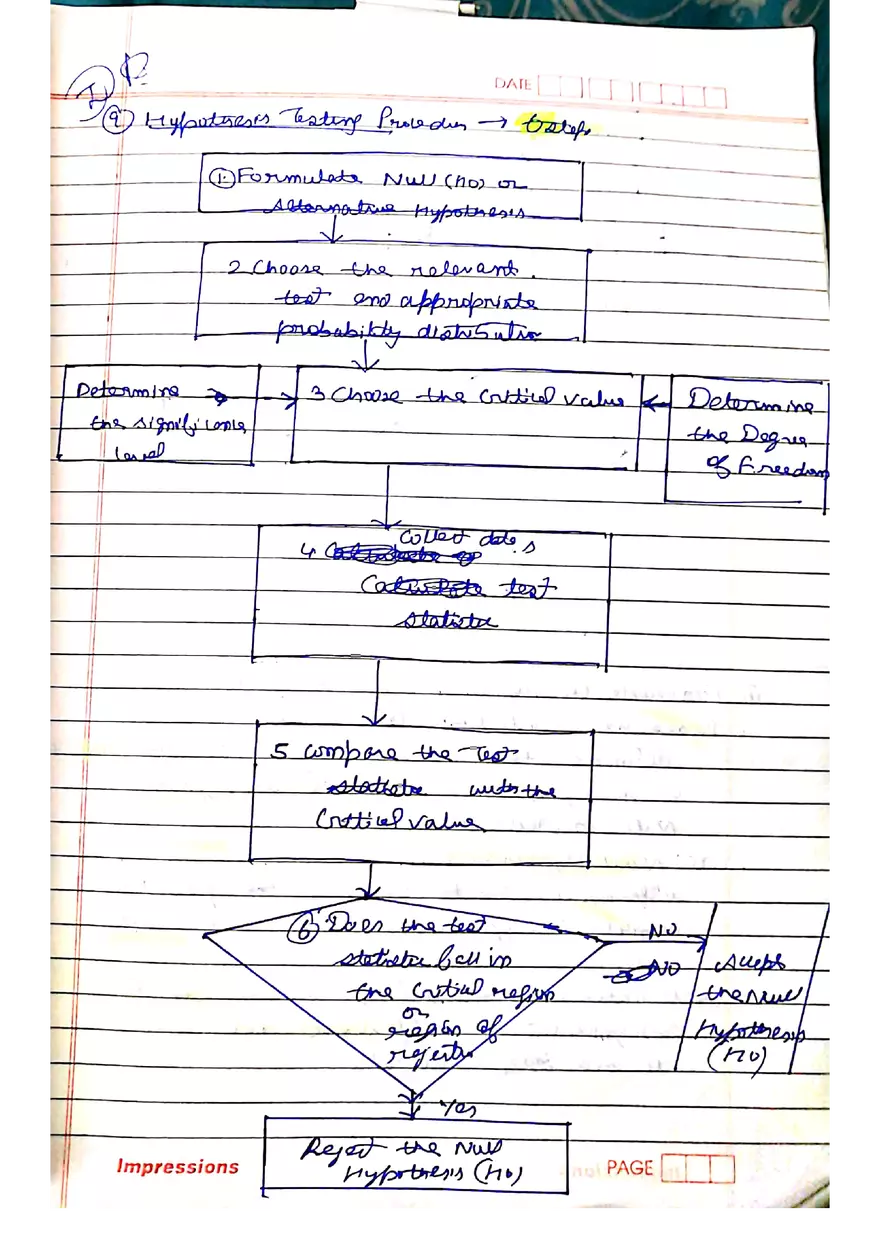 DATE
9 Hypothesis Testing Procedure → 6 steps
1. Formulate Null (H0) or
Alternative Hypothesis
2 Choose the relevant
test and appropriate
probability distribution
Determine →
the significance
level
3 Choose the critical value
Determine
the Degree
of Freedom
4. Collect data &
Calculate test
statistic
5 compare the Test
statistic with the
Critical value
6 Does the test
statistic fall in
the critical region
or
region of
rejection
NO
NO
Accept
the Null
Hypothesis
(H0)
Yes
Reject the Null
Hypothesis (H0)
Impressions
PAGE